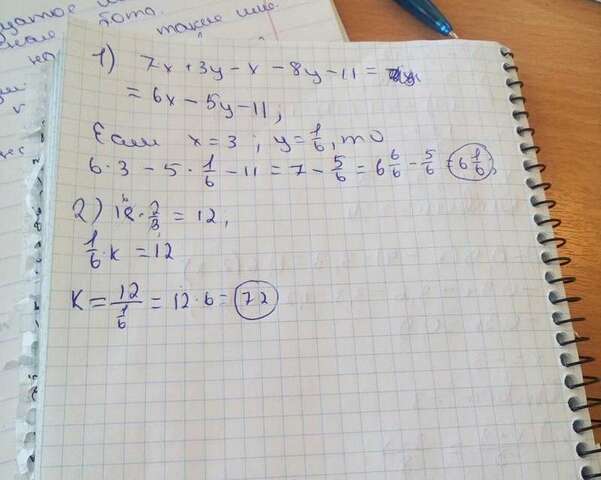 тоTo.
такие ине.
1) 7x + 3y - x - 8y - 11 =
= 6x - 5y - 11;
Если x = 3; y = 1/6, то
6·3 - 5·1/6 - 11 = 7 - 5/6 = 6 6/6 - 5/6 = 6 1/6,
2) 18·2/3 = 12;
1/6·k = 12
K = 12/(1/6) = 12·6 = 72